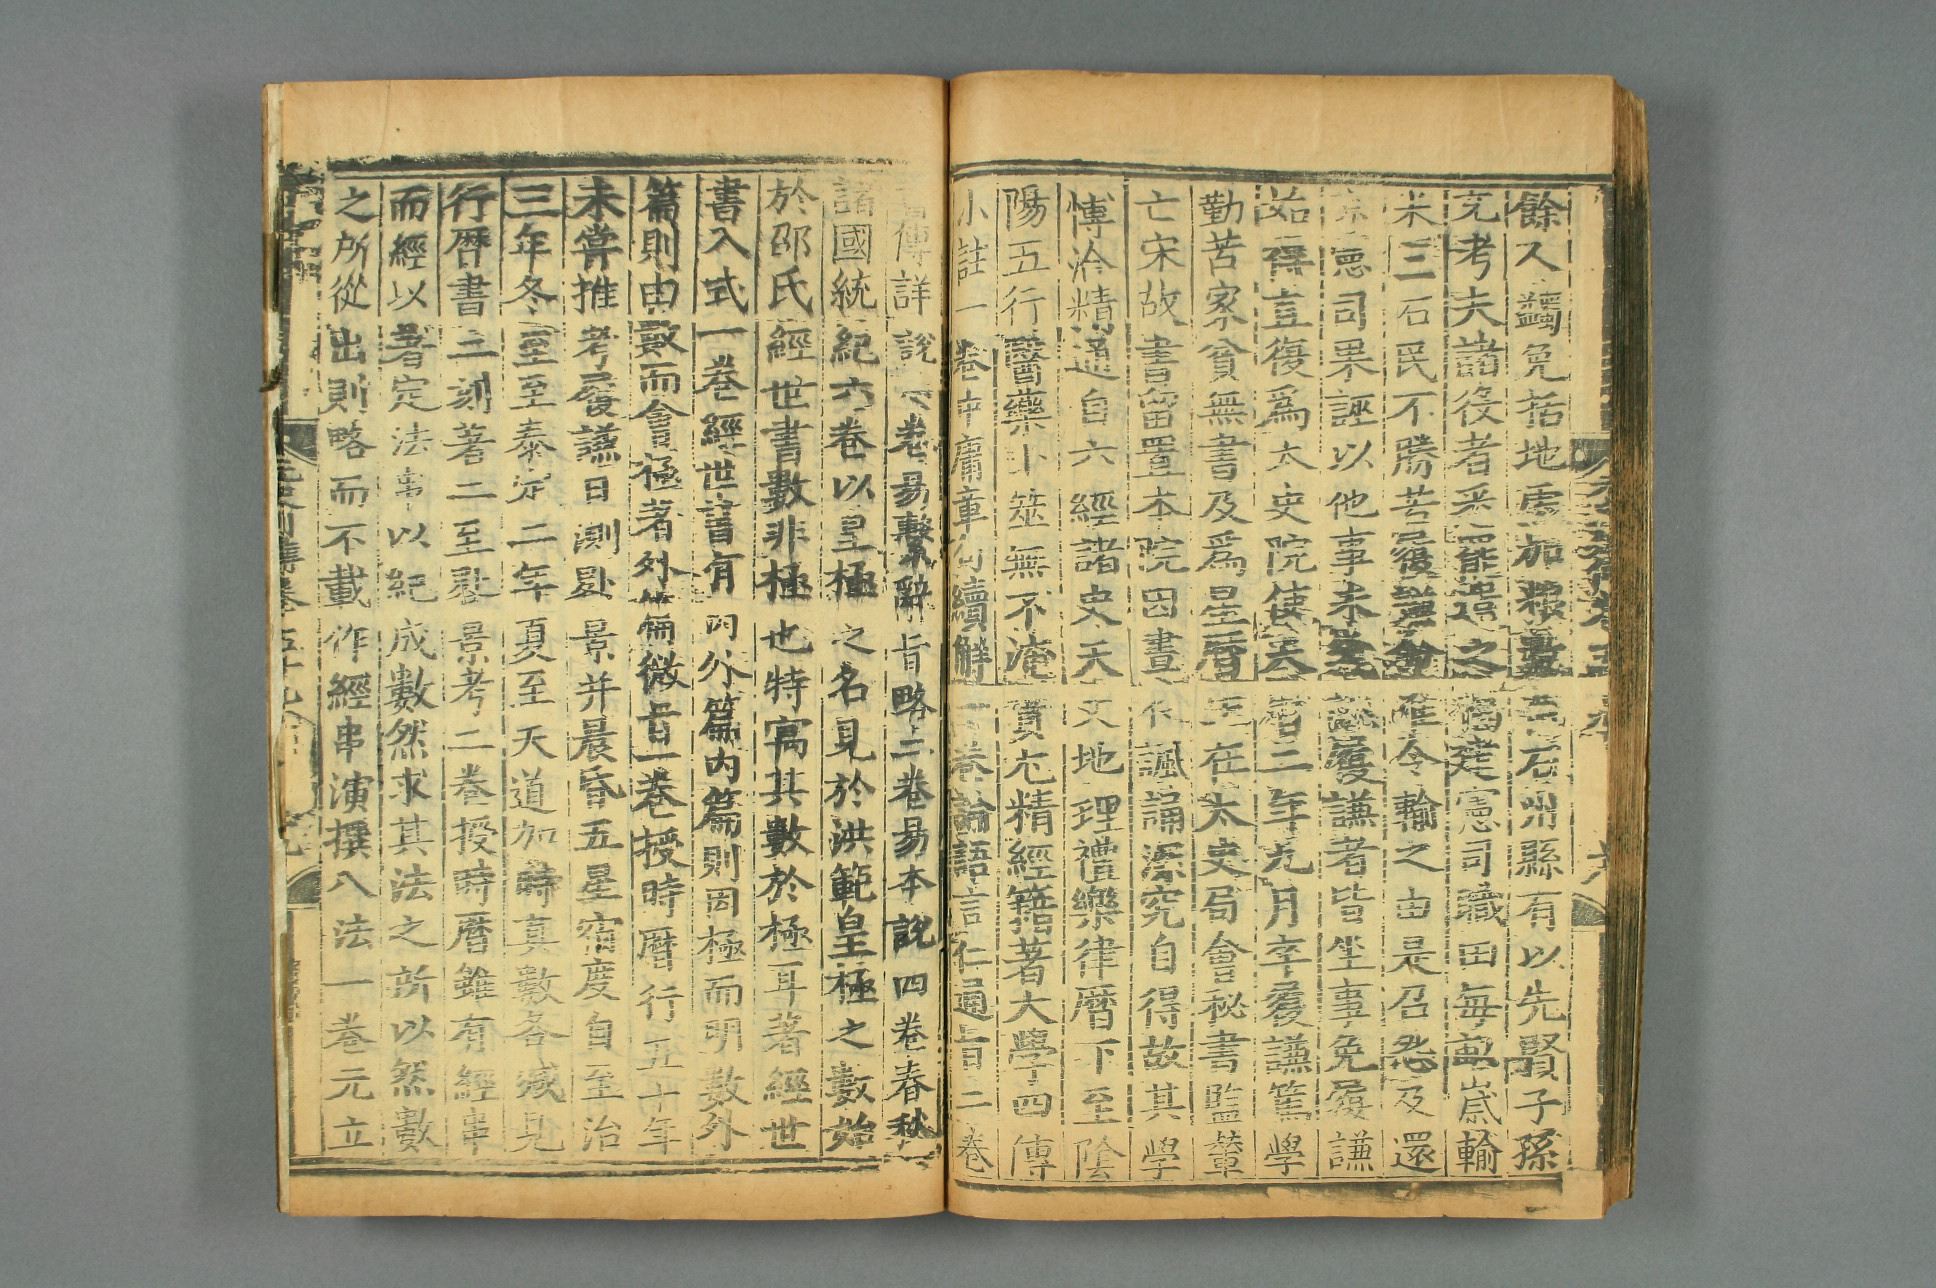 餘人蠲免括地虛加糧數石州縣有以先賢子孫
充考夫諸役者悉罷遣之福建憲司職田每畝歲輸
米三石民不勝苦履謙命准令輸之由是召怨及還
京憲司果誣以他事未幾誣履謙者皆坐事免履謙
始得直復爲太史院使天曆二年九月卒履謙篤學
勤苦家貧無書及爲星曆生在太史局會秘書監輦
亡宋故書留置本院因晝夜諷誦深究自得故其學
博洽精通自六經諸史天文地理禮樂律曆下至陰
陽五行醫藥卜筮無不淹貫尤精經籍著大學四傳
小註一卷中庸章句續解一卷論語言仁通旨二卷
書傳詳說一卷易繫辭旨略二卷易本說四卷春秋
諸國統紀六卷以皇極之名見於洪範皇極之數始
於邵氏經世書數非極也特寓其數於極耳著經世
書入式一卷經世書有內外篇內篇則因極而明數外
篇則由數而會極著外篇微旨一卷授時曆行五十年
未嘗推考履謙日測晷景并晨昏五星宿度自至治
三年冬至至泰定二年夏至天道加時真數各減見
行曆書二刻著二至晷景考二卷授時曆雖有經串
而經以著定法串以紀成數然求其法之所以然數
之所從出則略而不載作經串演撰八法一卷元立
元史列傳卷五十九